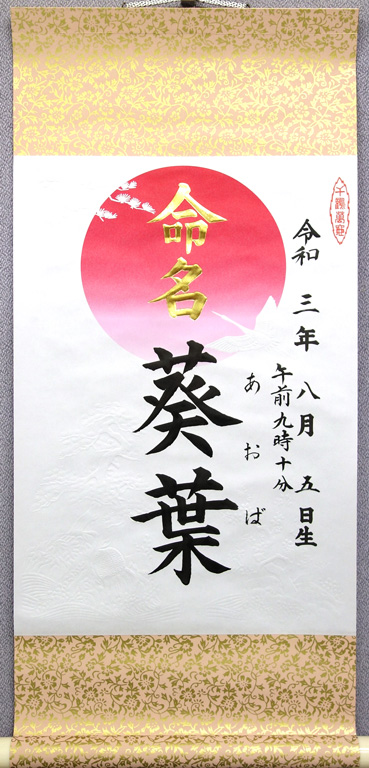 令和三年八月五日生
午前九時十分
あおば
命名
葵葉